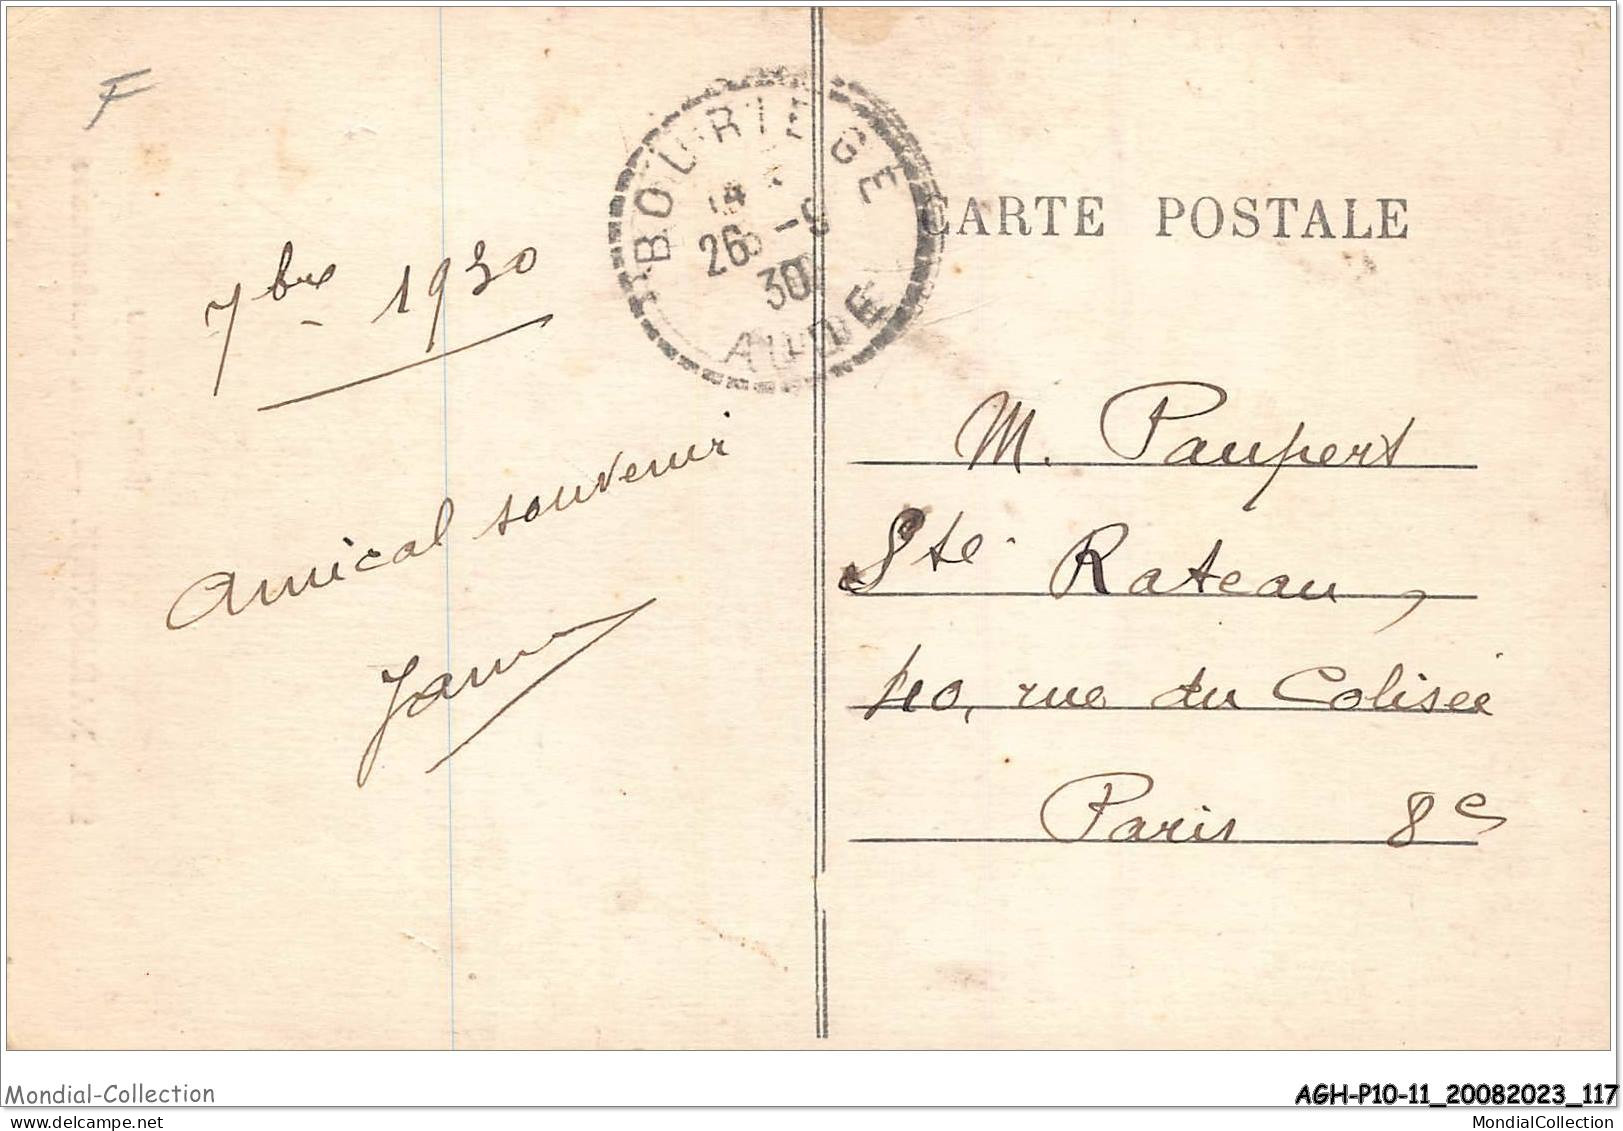 F
BOURIEGE
14
26 -9
30
AUDE
CARTE POSTALE
7bre 1930
Amical souvenir
M. Paupert
Sté Rateau,
40, rue du Colisée
Paris 8e
Mondial-Collection
AGH-P10-11_20082023_117
delcampe.net
MondialCollection